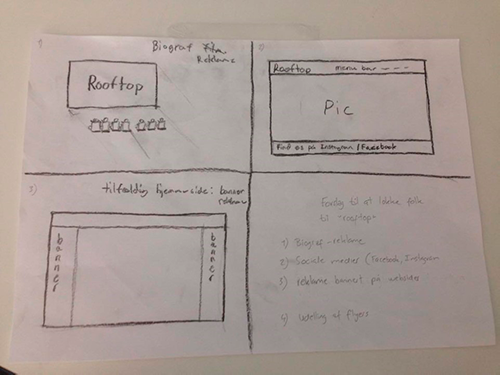 1)
Biograf film
Reklame
Rooftop
2)
Rooftop menu bar
Pic
Find os på Instagram / Facebook
3)
tilfældig hjemmeside: banner
reklame
banner
banner
Forslag til at lokke folk
til "rooftop"
1) Biograf-reklame
2) Sociale medier (Facebook, Instagram
3) reklame bannert på websites
4) Uddeling af flyers